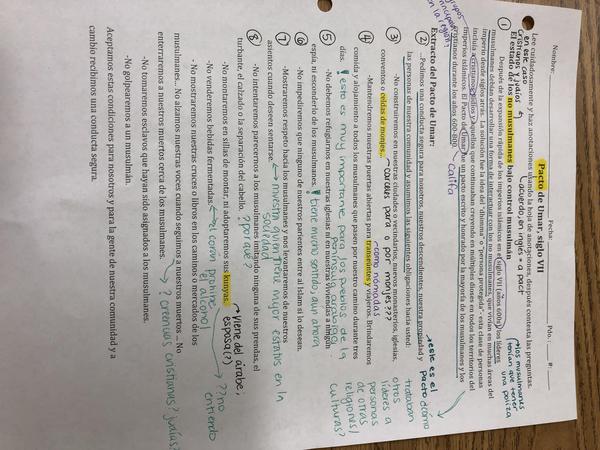 Nombre: Fecha: Pdo.: #:
Pacto de Umar, siglo VII
Lee cuidadosamente y haz anotaciones usando la hoja de anotaciones, después contesta las preguntas.
en este caso
cristianos y judíos
acuerdo, en inglés = a pact
El estado de los no musulmanes bajo control musulmán
los musulmanes
tenían que tener
una póliza
① Después de la expansión rápida de los imperios islámicos en el siglo VII (años 600s), los líderes
musulmanes debían desarrollar una forma de interactuar con los no musulmanes, que vivían en muchas áreas del
imperio desde siglos atrás. La solución fue la idea del "dhimma" o "persona protegida", esta clase de personas
incluía a cristianos, judíos y aquellos que continuaban creyendo en múltiples dioses en todos los territorios del
imperios islámicos. El Pacto de Umar fue un pacto escrito y honrado por la mayoría de los musulmanes y los
cristianos durante los años 600-800.
grupos
principales
en la región
califa
Extracto del Pacto de Umar:
este es el
pacto
cómo
trataban
líderes a
otros
personas
de otras
religiones/
culturas?
② ...Pedimos una conducta segura para nosotros, nuestros descendientes, nuestra propiedad y
las personas de nuestra comunidad y asumimos las siguientes obligaciones hasta usted:
③ -No construiremos en nuestras ciudades o vecindarios, nuevos monasterios, iglesias,
conventos o celdas de monjes...
cárceles para o por monjes???
como nómadas
④ -Mantendremos nuestras puertas abiertas para transeúntes y viajeros. Brindaremos
comida y alojamiento a todos los musulmanes que pasen por nuestro camino durante tres
días.
esto es muy importante para los pueblos de la
península arábica
⑤ -No debemos refugiarnos en nuestras iglesias ni en nuestras viviendas a ningún
espía, ni esconderlo de los musulmanes.
tiene mucho sentido aún ahora
⑥ -No impediremos que ninguno de nuestros parientes entren al Islam si lo desean.
⑦ -Mostraremos respeto hacia los musulmanes y nos levantaremos de nuestros
asientos cuando deseen sentarse.
muestra quien tiene mejor estatus en la
sociedad
⑧ -No intentaremos parecernos a los musulmanes imitando ninguna de sus prendas, el
turbante, el calzado o la separación del cabello.
¿por qué?
-No montaremos en sillas de montar, ni adoptaremos sus kunyas.
viene del árabe,
esposa(?)
-No venderemos bebidas fermentadas.
el corán prohíbe
el alcohol
-No mostraremos nuestras cruces o libros en los caminos o mercados de los
musulmanes... No alzamos nuestras voces cuando seguimos a nuestros muertos ... No
enterraremos a nuestros muertos cerca de los musulmanes.
??no
entiendo
creencias cristianas? judías?
-No tomaremos esclavos que hayan sido asignados a los musulmanes.
-No golpearemos a un musulmán.
Aceptamos estas condiciones para nosotros y para la gente de nuestra comunidad y a
cambio recibimos una conducta segura.